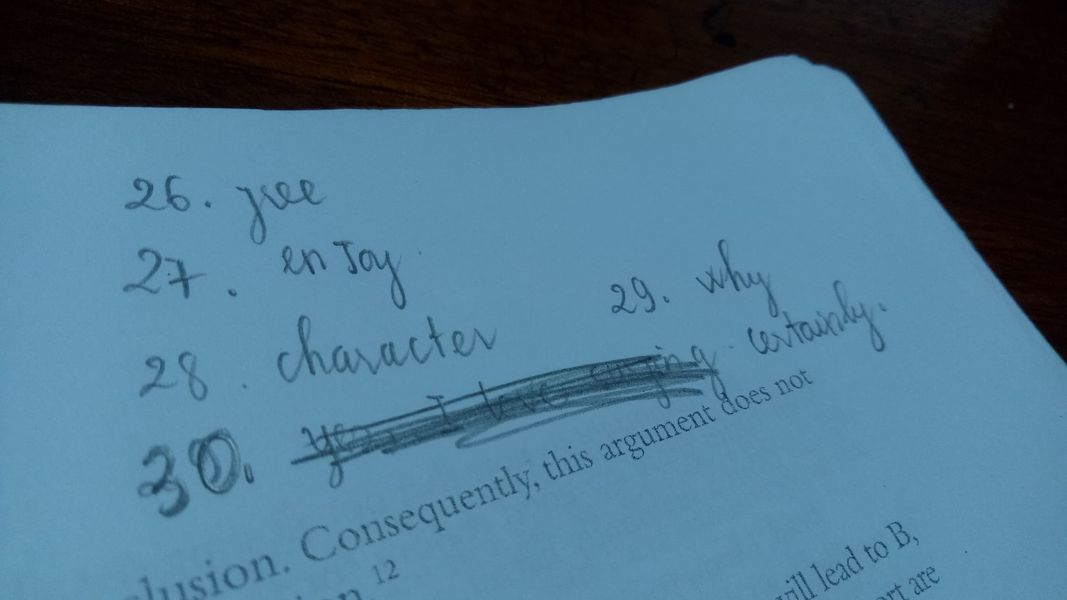 26. free
27. enJoy
28. character
29. why
30. yes, I love singing certainly.
clusion. Consequently, this argument does not
12
will lead to B,
are